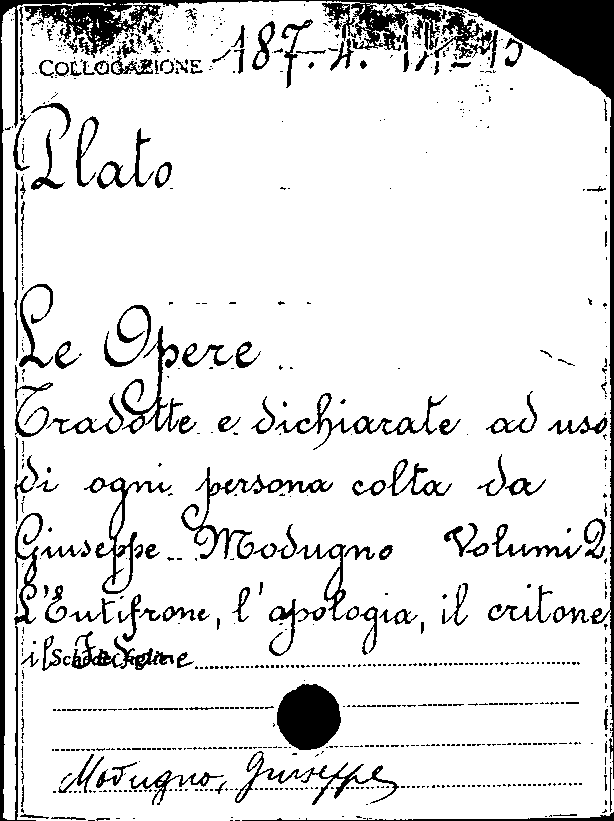 COLLOCAZIONE 187. 4. 14-15
Plato
Le Opere
Tradotte e dichiarate ad uso
di ogni persona colta da
Giuseppe Modugno Volumi 2.
L'Eutifrone, l'apologia, il critone,
il
Modugno, Giuseppe